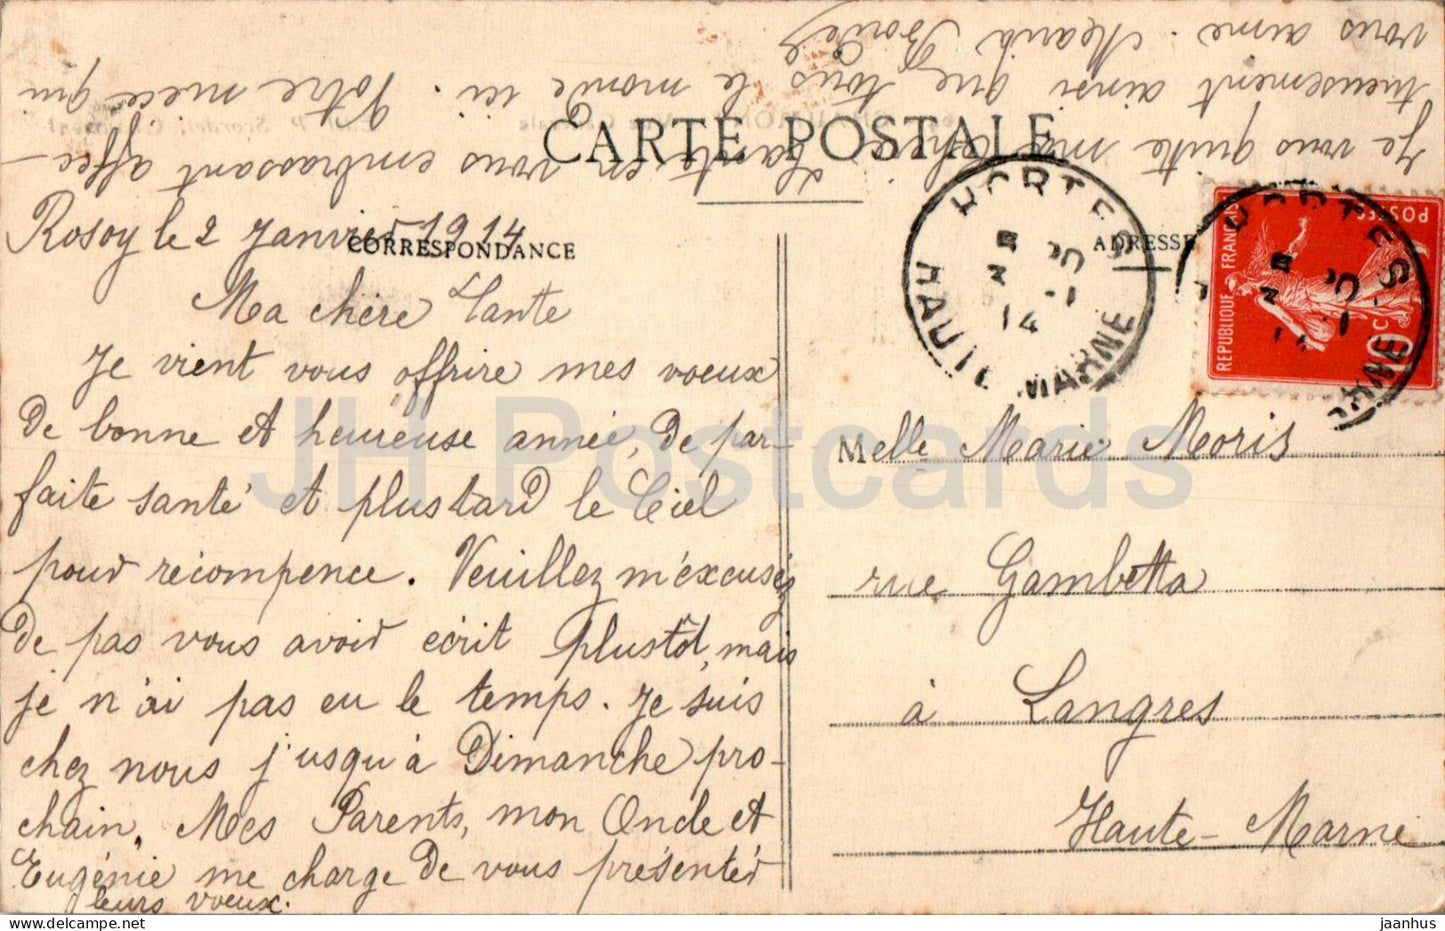 CARTE POSTALE
CORRESPONDANCE
ADRESSE
Rosoy le 2 Janvier 1914
Ma chère Tante
Je vient vous offrire mes voeux
de bonne et heureuse année, de par-
faite santé et plus tard le Ciel
pour récompence. Veuillez m'éxcuséz
de pas vous avoir écrit plustôt, mais
je n'ai pas eu le temps. Je suis
chez nous j'usqu'à Dimanche pro-
chain. Mes Parents, mon Oncle et
Eugénie me charge de vous présenter
leurs voeux.
Je vous quitte ma chère Tante en vous embrassant affec-
tueusement ainsi que tous le monde ici. Votre niece qui
vous aime. Maria
Melle Marie Moris
rue Gambetta
à Langres
Haute-Marne
HORTES
HAUTE MARNE
14
HORTES
REPUBLIQUE FRANÇAISE
POSTES
10c
JH Postcards
jaanhus